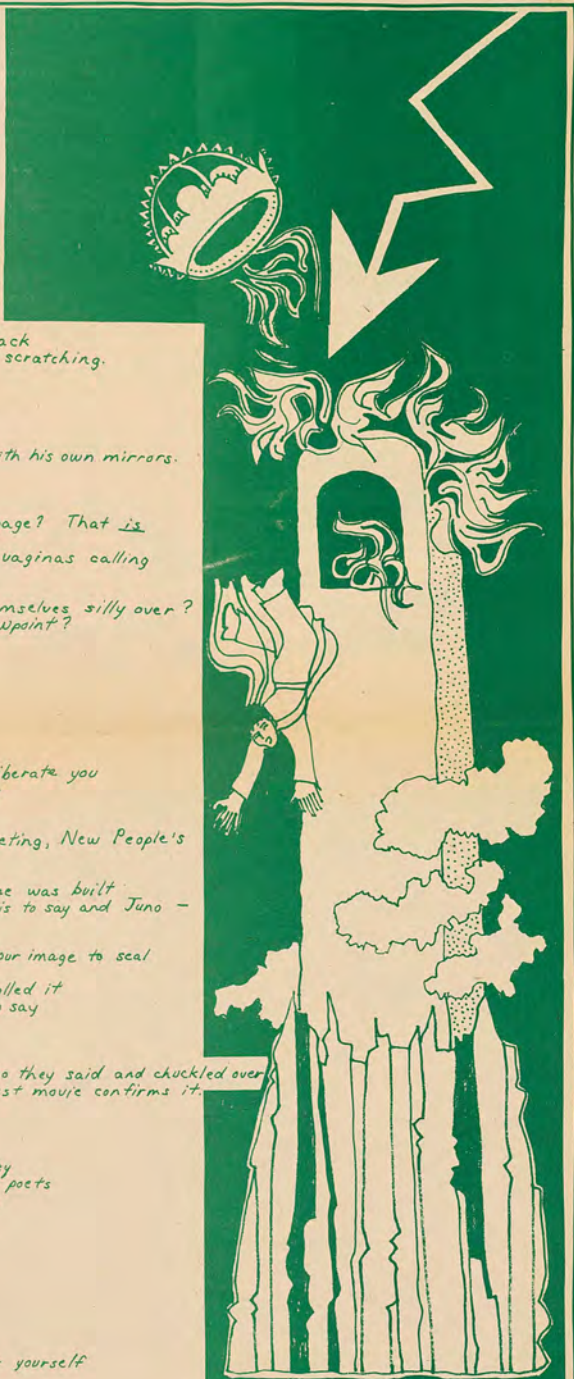 ack
scratching.
th his own mirrors.
age? That is
vaginas calling
mselves silly over?
wpoint?
iberate you
eting, New People's
se was built
is to say and Juno -
our image to seal
lled it
o say
o they said and chuckled over
st movie confirms it.
ey
poets
yourself